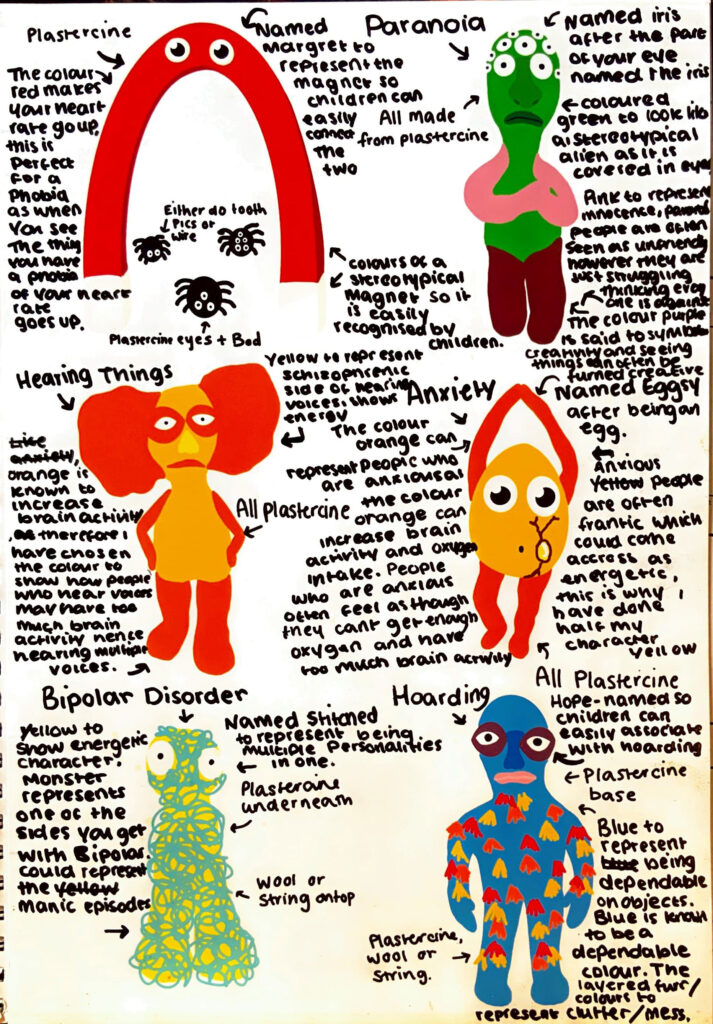 Plastercine
The colour
red makes
your heart
rate go up,
this is
perfect
for a
Phobia
as when
you see
the thing
you have
a phobia
of your heart
rate
goes up.
Named
Margret to
represent the
magnet so
children can
easily
connect
the
two
Either do tooth
pics or
wire
Plastercine eyes + Bod
colours of a
stereotypical
magnet so it
is easily
recognised by
children.
Paranoia
All made
from plastercine
Named iris
after the part
of your eye
named the iris
coloured
green to look like
a stereotypical
alien as it is
covered in eyes
Pink to represent
innocence, paranoid
people are often
seen as unfriendly
however they are
just struggling
thinking every
one is against
The colour purple
is said to symbolise
creativity and seeing
things can often be
turned creative
Hearing Things
Like
anxiety,
orange is
known to
increase
brain activity
, as therefore I
have chosen
the colour to
show how people
who hear voices
may have too
much brain
activity hence
hearing multiple
voices.
Yellow to represent
schizophrenic
side of hearing
voices. shows
energy
All plastercine
Anxiety
The colour
orange can
represent people who
are anxious as
the colour
orange can
increase brain
activity and oxygen
intake. People
who are anxious
often feel as though
they cant get enough
oxygen and have
too much brain activity
Named Eggsy
after being an
egg.
Anxious
Yellow people
are often
frantic which
could come
across as
energetic,
this is why I
have done
half my
character
yellow
All Plastercine
Bipolar Disorder
Yellow to
show energetic
character.
Monster
represents
one of the
sides you get
with Bipolar.
could represent
the yellow
manic episodes
Named Stitched
to represent being
multiple Personalities
in one.
Plastercine
underneath
Wool or
String ontop
Hoarding
Hope-named so
children can
easily associate
with hoarding
Plastercine
base
Blue to
represent
blue being
dependable
on objects.
Blue is known
to be a
dependable
colour. The
layered fur/
colours to
represent clutter/mess.
Plastercine,
wool or
String.